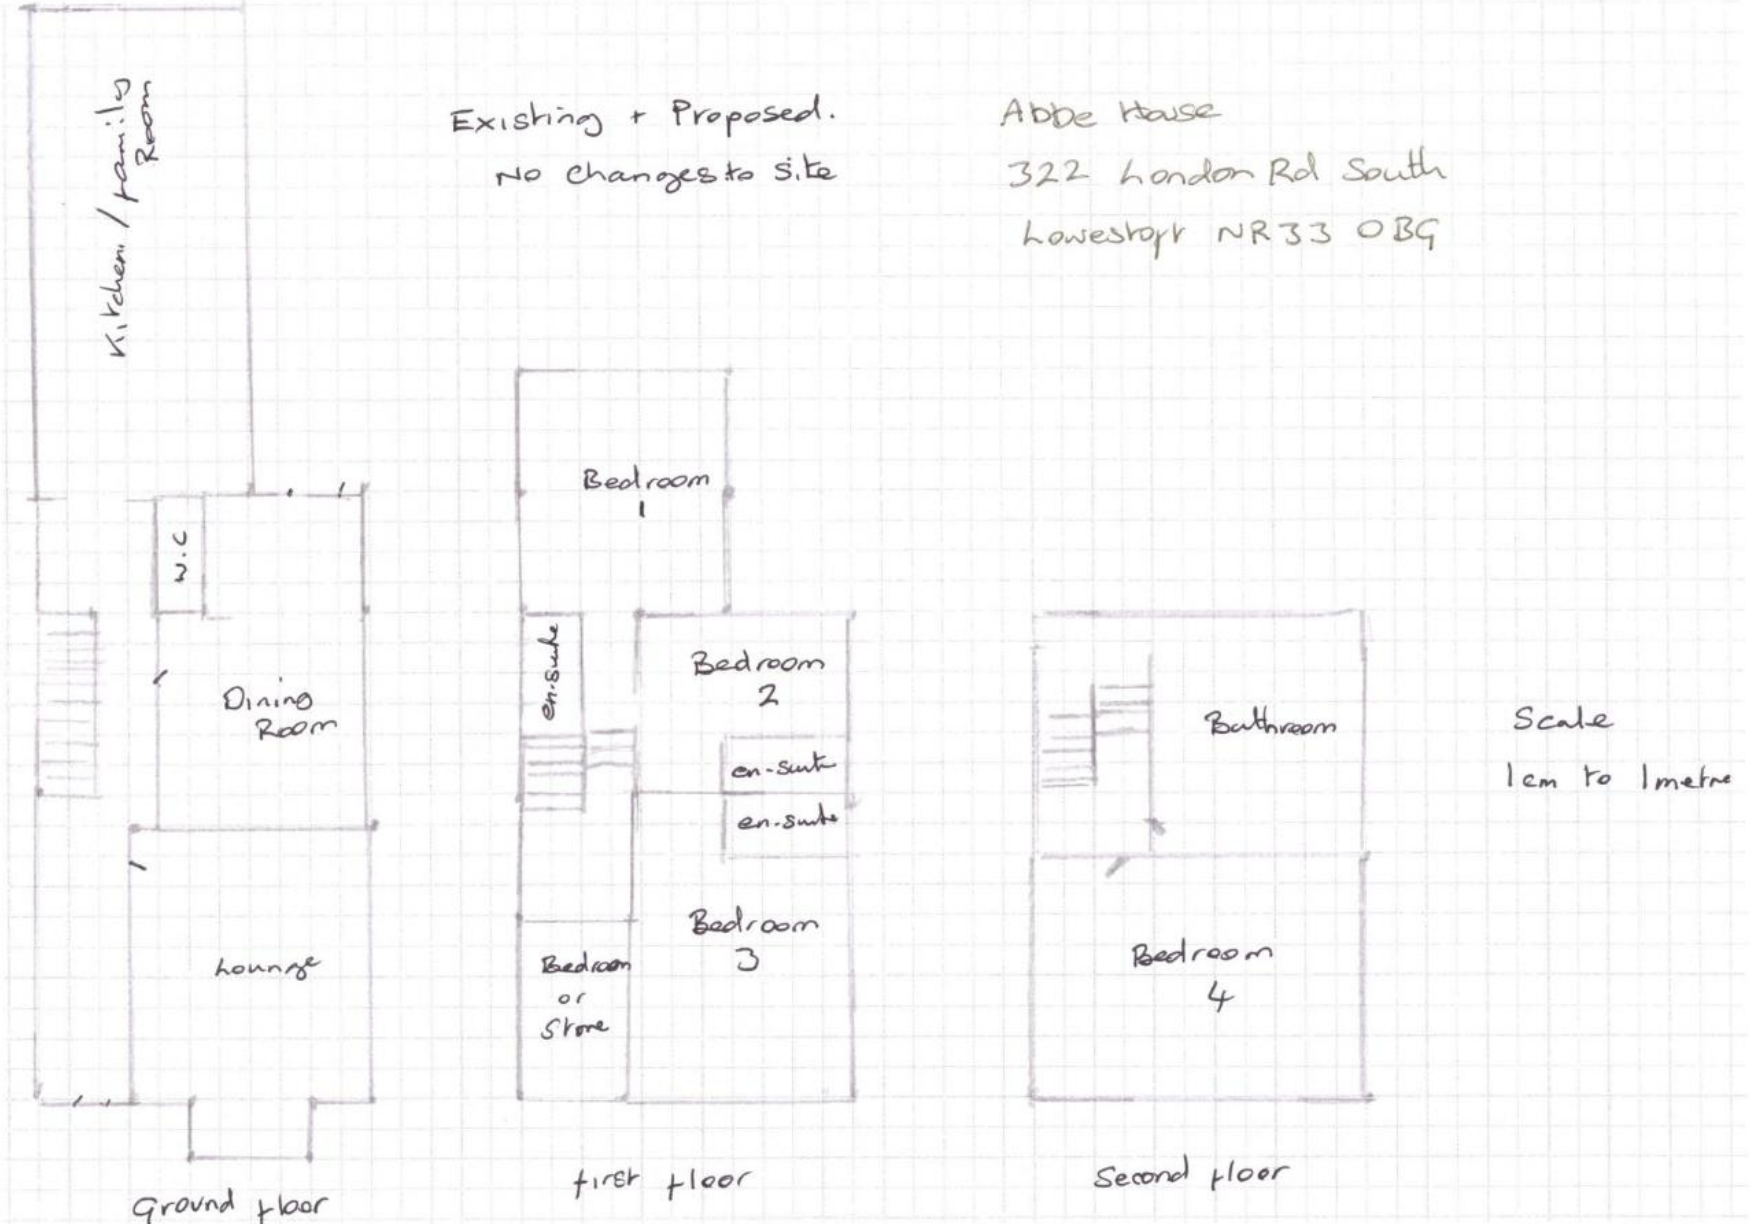 Existing + Proposed.
No changes to site
Abbe House
322 London Rd South
Lowestoft NR33 0BG
Kitchen / family
Room
W.C
Dining
Room
Lounge
Ground floor
Bedroom
1
en-suite
Bedroom
2
en-suite
en-suite
Bedroom
3
Bedroom
or
Store
first floor
Bathroom
Bedroom
4
Second floor
Scale
1cm to 1metre